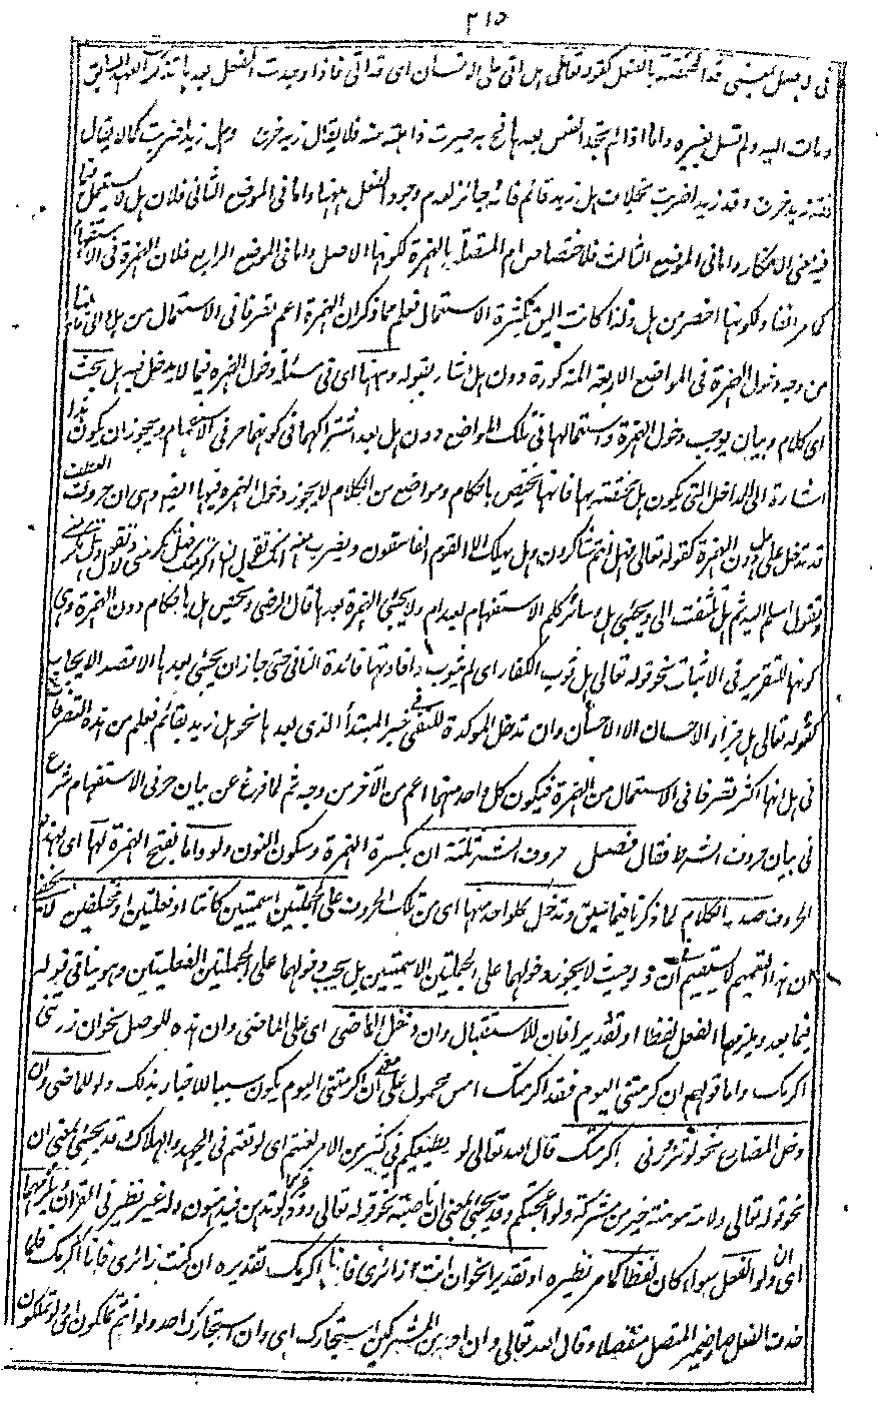 ٢١٥
فى الاصل بمعنى قد المختصة بالفعل كقوله تعالى هل اتى على الانسان اى قد اتى فاذا وجدت الفعل بعدها تذكر العهد السابق
ومالت اليه ولم تسل بغيره واما اذا لم تجد الفعل بعدها فح تصيرت ذاهلة عنه فلا يقال زيد خرج وهل زيدا ضربت كما لا يقال
قد زيد خرج وقد زيدا ضربت بخلاف هل زيد قائم فانه جائز لعدم وجود الفعل ههنا واما فى الموضع الثانى فلان هل لا يستعمل
فيه معنى الانكار واما فى الموضع الثالث فلاختصاص ام المتصلة بالهمزة لكونها الاصل واما فى الموضع الرابع فلان الهمزة فى الاستفهام
كما مر انفا ولكونها اخصر من هل ولذا كانت اليق بكثرة الاستعمال فعلم مما ذكر ان الهمزة اعم تصرفا فى الاستعمال من هل
من وجه دخول الهمزة فى المواضع الاربعة المذكورة دون هل اشار بقوله وههنا اى فى مسئلة دخول الهمزة فيما لا يدخل فيه هل بحث
اى كلام وبيان يوجب دخول الهمزة واستعمالها فى تلك المواضع دون هل بعد اشتراكهما فى كونهما حرفى الاستفهام ويجوز ان يكون هذا
اشارة الى المداخل التى يكون هل مختصة بها فانها تختص باحكام ومواضع من الكلام لا يجوز دخول الهمزة فيها ايضا وهى ان حروف العطف
قد تدخل على هل دون الهمزة كقوله تعالى فهل انتم شاكرون وهل يهلك الا القوم الفاسقون
وتقول اسلم اليه ثم هل تلتفت الى ويجئ هل وسائر كلم الاستفهام بعد ام ولا يجئ الهمزة بعدها قال الرضى ويختص هل باحكام دون الهمزة وهى
كونها للتقرير فى الاثبات نحو قوله تعالى هل ثوب الكفار اى لم يثوب وافادتها فائدة النافى حتى جاز ان يجئ بعدها الا لقصد الايجاب
كقوله تعالى هل جزاء الاحسان الا الاحسان وان تدخل الموكدة للنفى فى خبر المبتدأ الذى بعدها نحو هل زيد بقائم فعلم من هذه التصرفات
فى هل انها اكثر تصرفا فى الاستعمال من الهمزة فيكون كل واحد منهما اعم من الآخر من وجه ثم لما فرغ عن بيان حرفى الاستفهام شرع
فى بيان حروف الشرط فقال فصل حروف الشرط ثلثة ان بكسرة الهمزة وسكون النون ولو واما بفتح الهمزة لها اى لهذه
الحروف صدر الكلام لما ذكرنا فيما سبق وتدخل كل واحد منها اى من تلك الحروف على الجملتين اسميتين كانتا او فعليتين او مختلفين
ان هذا التعميم لا يستقيم فى ان ولو حيث لا يجوز دخولهما على الجملتين الاسميتين بل يجب دخولهما على الجملتين الفعليتين وهو ينافى قوله
فيما بعد ويلزمها الفعل لفظا او تقديرا فان للاستقبال وان دخل الماضى اى على الماضى وان هذه للوصل نحو ان زرتنى
اكرمك واما قولهم ان اكرمتنى اليوم فقد اكرمتك امس محمول على معنى ان اكرمتنى اليوم يكون سببا للاخبار بذلك ولو للماضى وان
دخل المضارع نحو لو تزورنى اكرمتك قال الله تعالى لو يطيعكم فى كثير من الامر لعنتم اى لوقعتم فى الجهد والهلاك وقد يجئ بمعنى ان
نحو قوله تعالى ولامة مؤمنة خير من مشركة ولو اعجبتكم وقد يجئ بمعنى ان ناصبة نحو قوله تعالى ودوا لو تدهن فيدهنون وله غير نظير فى القرآن ويلزمهما
اى ان ولو الفعل سواء كان لفظا كما مر نظيره او تقديرا نحو ان انت زائرى فانا اكرمك تقديره ان كنت زائرى فانا اكرمك فلما
حذف الفعل صار ضمير المتصل منفصلا وقال الله تعالى وان احد من المشركين استجارك اى وان استجارك احد ولو انتم تملكون اى لو تملكون